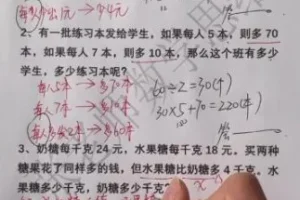 每人少出1元 → 少4元
答
2、有一批练习本发给学生，如果每人 5 本，则多 70
本，如果每人 7 本，则多 10 本，那么这个班有多少
学生，多少练习本呢？
每人5本 → 多70本
60÷2=30(个)
每人7本 → 多10本
30×5+70=220(本)
每人多发2本 → 多60本
答
3、奶糖每千克 24 元，水果糖每千克 18 元。买两种
糖果花了同样多的钱，但水果糖比奶糖多 4 千克，水
果糖多少千克，奶糖多少千克？